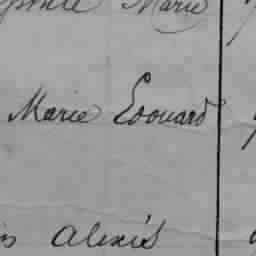 Marie
Marie Edouard
Alexis